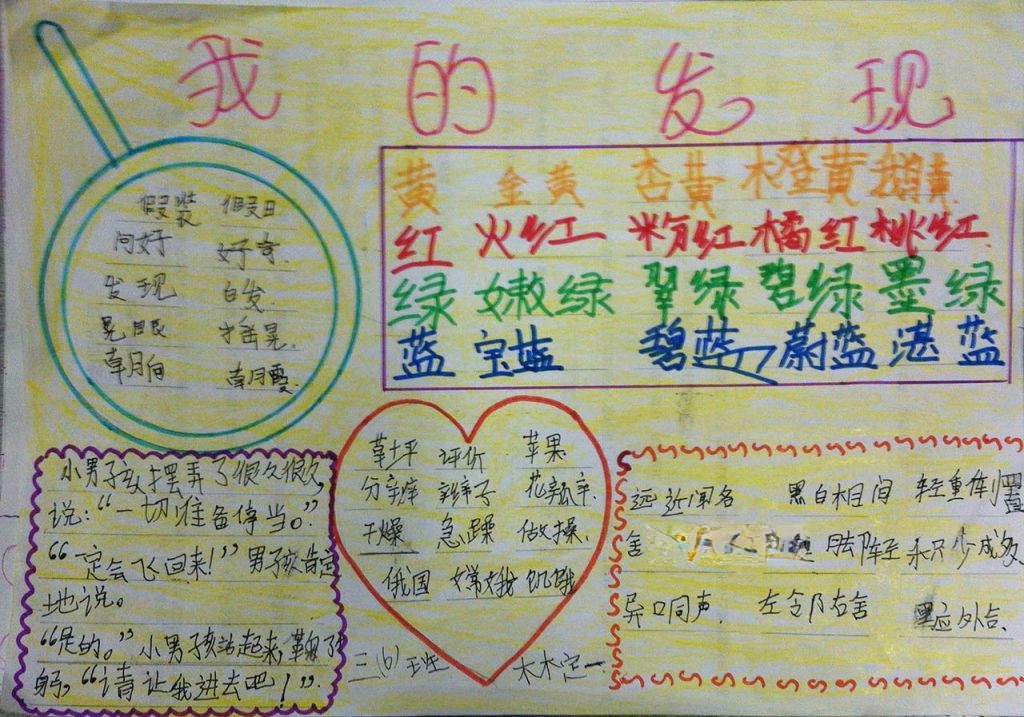 我的发现
假装 假日
问好 好奇
发现 白发
晃眼 摇晃
朝向 朝霞
黄 金黄 杏黄 橙黄 鹅黄
红 火红 粉红 橘红 桃红
绿 嫩绿 翠绿 碧绿 墨绿
蓝 宝蓝 碧蓝 蔚蓝 湛蓝
小男孩摆弄了很久很久
说:“一切准备停当。”
“一定会飞回来!”男孩肯定
地说。
“是的。”小男孩站起来,鞠了
躬,“请让我进去吧!”
草坪 评价 苹果
分辩 辫子 花瓣
干燥 急躁 做操
俄国 嫦娥 饥饿
三(6)班
远近闻名 黑白相间 轻重
舍 人
异口同声 左邻右舍 里应外合